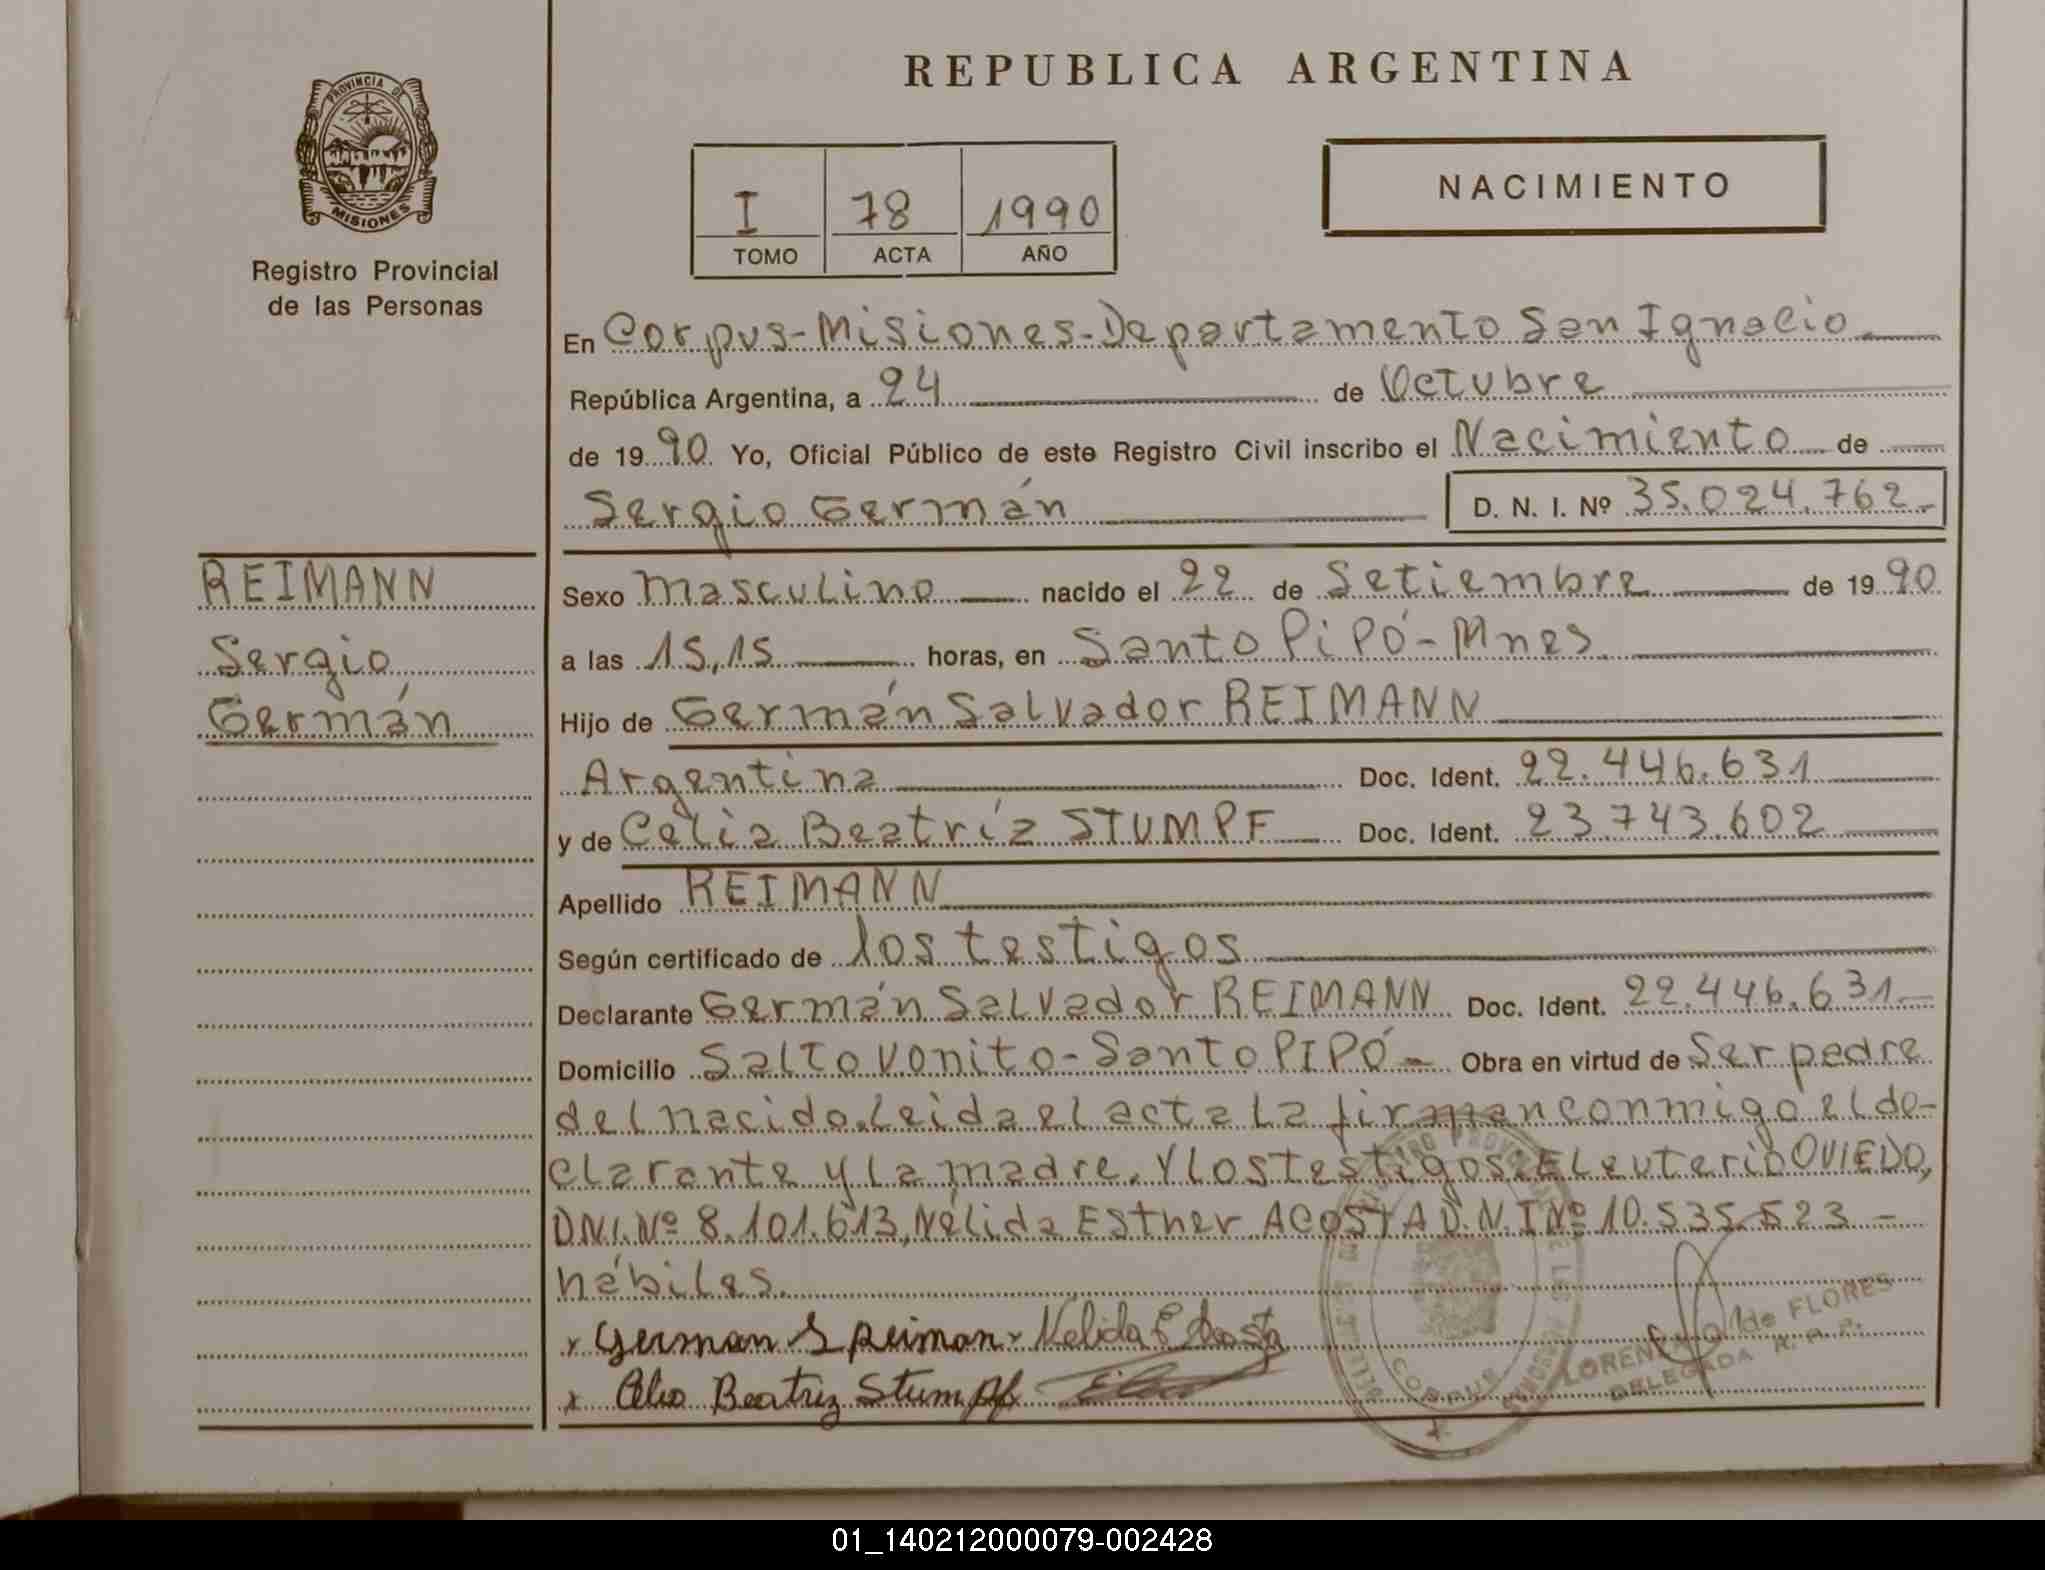 REPUBLICA ARGENTINA
PROVINCIA DE
MISIONES
Registro Provincial
de las Personas
I 78 1990
TOMO ACTA AÑO
NACIMIENTO
En Corpus-Misiones-Departamento San Ignacio
República Argentina, a 24 de Octubre
de 1990 Yo, Oficial Público de este Registro Civil inscribo el Nacimiento de
Sergio Germán D. N. I. Nº 35.024.762-
REIMANN
Sergio
Germán
Sexo Masculino nacido el 22 de Setiembre de 1990
a las 15,15 horas, en Santo Pipó-Mnes
Hijo de Germán Salvador REIMANN
Argentina Doc. Ident. 22.446.631
y de Celia Beatríz STUMPF Doc. Ident. 23.743.602
Apellido REIMANN
Según certificado de los testigos
Declarante Germán Salvador REIMANN Doc. Ident. 22.446.631-
Domicilio Salto Vonito-Santo PIPÓ- Obra en virtud de Ser padre
del nacido. Leida el acta La firman conmigo el de-
clarante y La madre. Y los testigos: Eleuterio OVIEDO,
DNI.Nº 8.101.613, Nélida Esther ACOSTA D.N.I Nº 10.535.523-
hábiles.
x German S Reiman x Nelida E Acosta
x Celia Beatriz Stumpf
CORPUS
LORENZA de FLORES
DELEGADA R. P. P.
01_140212000079-002428